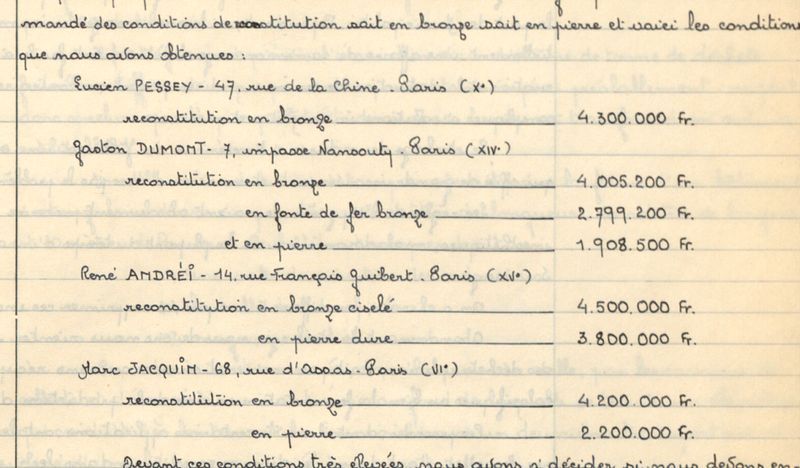 mandé des conditions de reconstitution soit en bronze soit en pierre et voici les conditions
que nous avons obtenues :
Lucien PESSEY - 47, rue de la Chine - Paris (Xe)
reconstitution en bronze 4.300.000 Fr.
Gaston DUMONT - 7, impasse Nansouty - Paris (XIVe)
reconstitution en bronze 4.005.200 Fr.
en fonte de fer bronze 2.799.200 Fr.
et en pierre 1.908.500 Fr.
René ANDRÉÏ - 14, rue François Guibert - Paris (XVe)
reconstitution en bronze ciselé 4.500.000 Fr.
en pierre dure 3.800.000 Fr.
Marc JACQUIN - 68, rue d'Assas - Paris (VIe)
reconstitution en bronze 4.200.000 Fr.
en pierre 2.200.000 Fr.
Devant ces conditions très élevées, nous avons à décider si nous devons en-